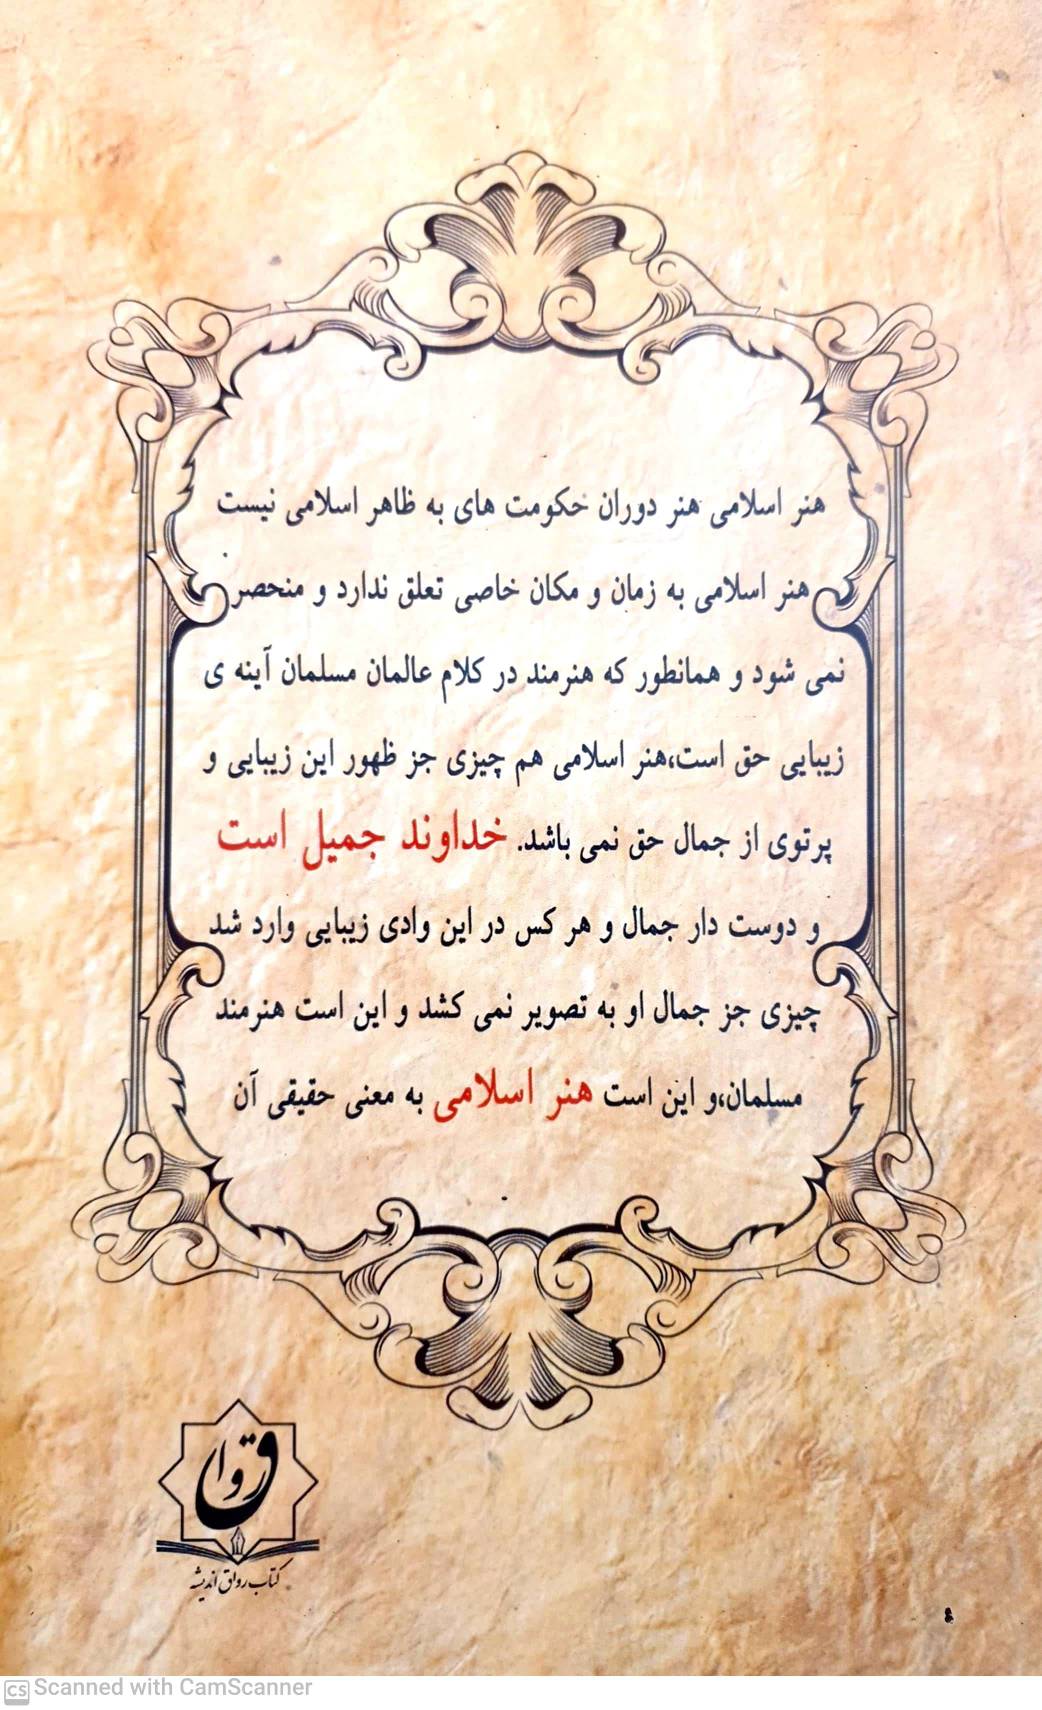 هنر اسلامی هنر دوران حکومت های به ظاهر اسلامی نیست
هنر اسلامی به زمان و مکان خاصی تعلق ندارد و منحصر
نمی شود و همانطور که هنرمند در کلام عالمان مسلمان آینه ی
زیبایی حق است،هنر اسلامی هم چیزی جز ظهور این زیبایی و
پرتوی از جمال حق نمی باشد. خداوند جمیل است
و دوست دار جمال و هر کس در این وادی زیبایی وارد شد
چیزی جز جمال او به تصویر نمی کشد و این است هنرمند
مسلمان،و این است هنر اسلامی به معنی حقیقی آن
رواق
کتاب رواق اندیشه
CS Scanned with CamScanner